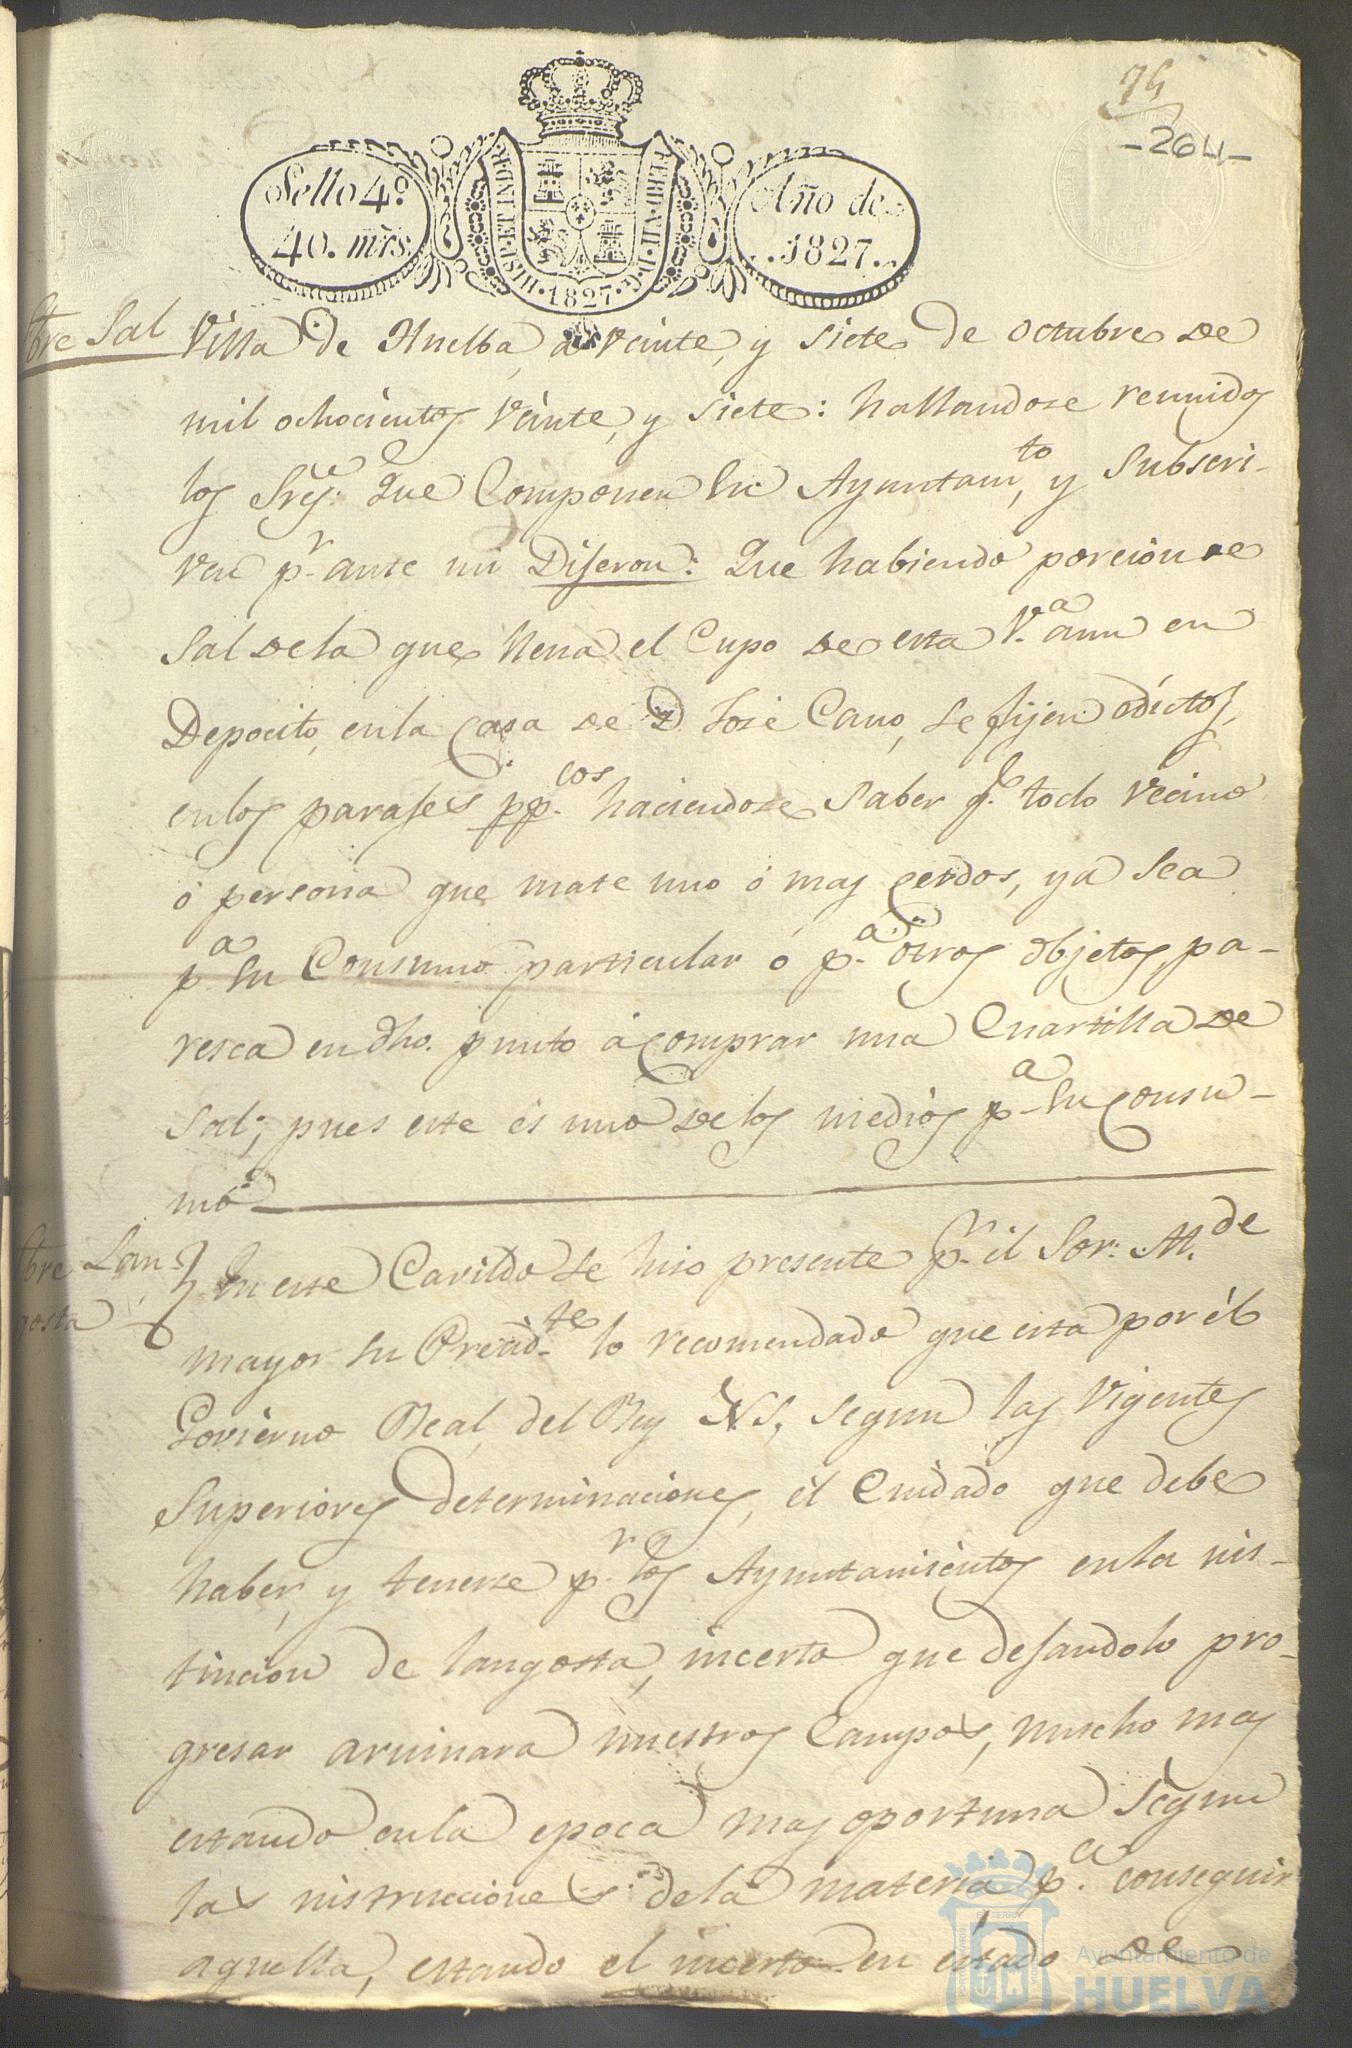 75
-264-
Sello 4º
40. mrs
HISP. ET IND. R.
FERD. VII. D. G.
1827
Año de
1827.
tre Sal
Villa de Huelba, a veinte, y siete de octubre de
mil ochocientos veinte, y siete: hallandose reunidos
los Sres. que Componen su Ayuntamto, y Subscri-
ven pr ante mi Dijeron: Que habiendo porcion de
Sal de la que llena el Cupo de esta Va. aun en
Depocito, en la Casa de D José Cano, se fijen edictos,
en los parajes ppcos haciendose saber qe todo vecino
ó persona que mate uno ó mas cerdos, ya sea
pa su Consumo particular ó pa otros objetos, pa-
resca en dho. punto á comprar una Cuartilla de
Sal; pues este es uno de los medios pa su Consu-
mo
tre Lan-
gosta
En este Cavildo se hiso presente pr el Sor. Alde
mayor su Precidte lo recomendado que esta por él
Govierno Real, del Rey NS, segun las vigentes
Superiores determinaciones, él Cuidado que debe
haber, y tenerse pr los Ayuntamientos en la nis-
tincion de langosta, incerto que dejandolo pro-
gresar aruinara nuestros Campos, mucho mas
estando en la epoca mas oportuna segun
las nistrucciones de la materia pa. conseguir
aquella, estando el incerto en éstado de
Ayuntamiento de
HUELVA